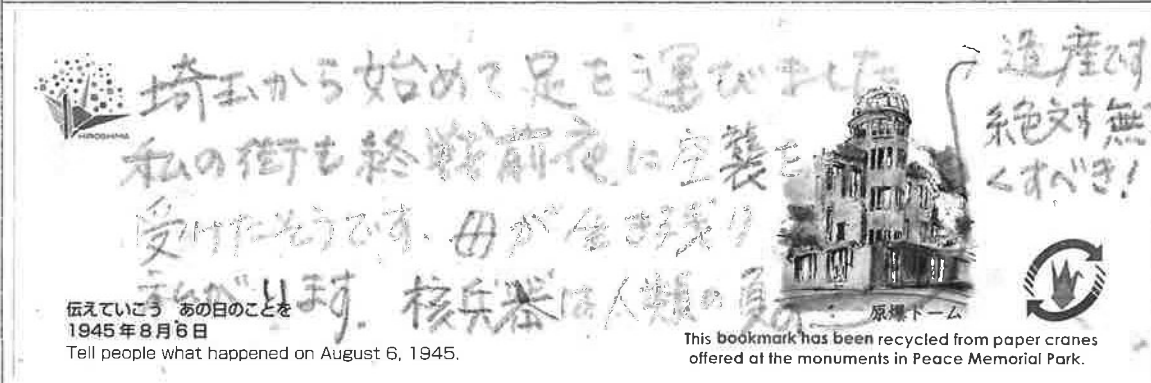 HIROSHIMA
埼玉から始めて足を運びました
私の街も終戦前夜に空襲を
受けたそうです、母が生き残り
私がいます。核兵器は人類の負の
遺産です
絶対す無
くすべき!
伝えていこう あの日のことを
1945年8月6日
Tell people what happened on August 6, 1945.
原爆ドーム
This bookmark has been recycled from paper cranes
offered at the monuments in Peace Memorial Park.